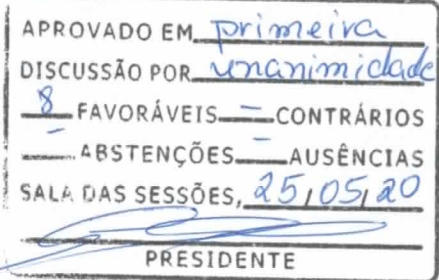 APROVADO EM primeira
DISCUSSÃO POR unanimidade
8 FAVORÁVEIS — CONTRÁRIOS
— ABSTENÇÕES — AUSÊNCIAS
SALA DAS SESSÕES, 25/05/20
PRESIDENTE